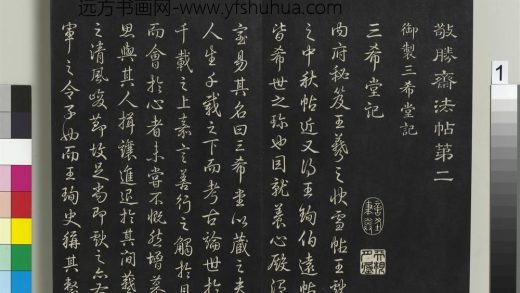 远方书画网-www.yfshuhua.com
敬勝齋法帖第二
御製三希堂記
三希堂記
内府秘笈王羲之快雪帖王獻
之中秋帖近又得王珣伯遠帖
皆希世之珎也因就養心殿温
室易其名曰三希堂以藏之夫
人生千載之下而考古論世於
千載之上嘉言善行之觸於目
而會於心者未嘗不慨然增慕
思與其人揖讓進退於其間羲
之清風峻節故足尚即獻之亦右
軍之令子也而王珣史稱其整
1